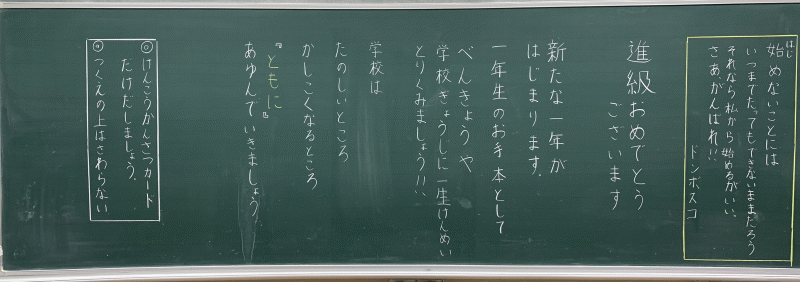 はじ
始めないことには
いつまでたってもできないままだろう
それなら私から始めるがいい、
さあ、がんばれ!!、
ドンボスコ
進級おめでとう
ございます
新たな一年が
はじまります。
一年生のお手本として
べんきょうや
学校ぎょうじに一生けんめい
とりくみましょう!!、
学校は
たのしいところ
かしこくなるところ
『ともに』
あゆんでいきましょう
◎けんこうかんさつカード
だけだしましょう。
◎つくえの上はさわらない